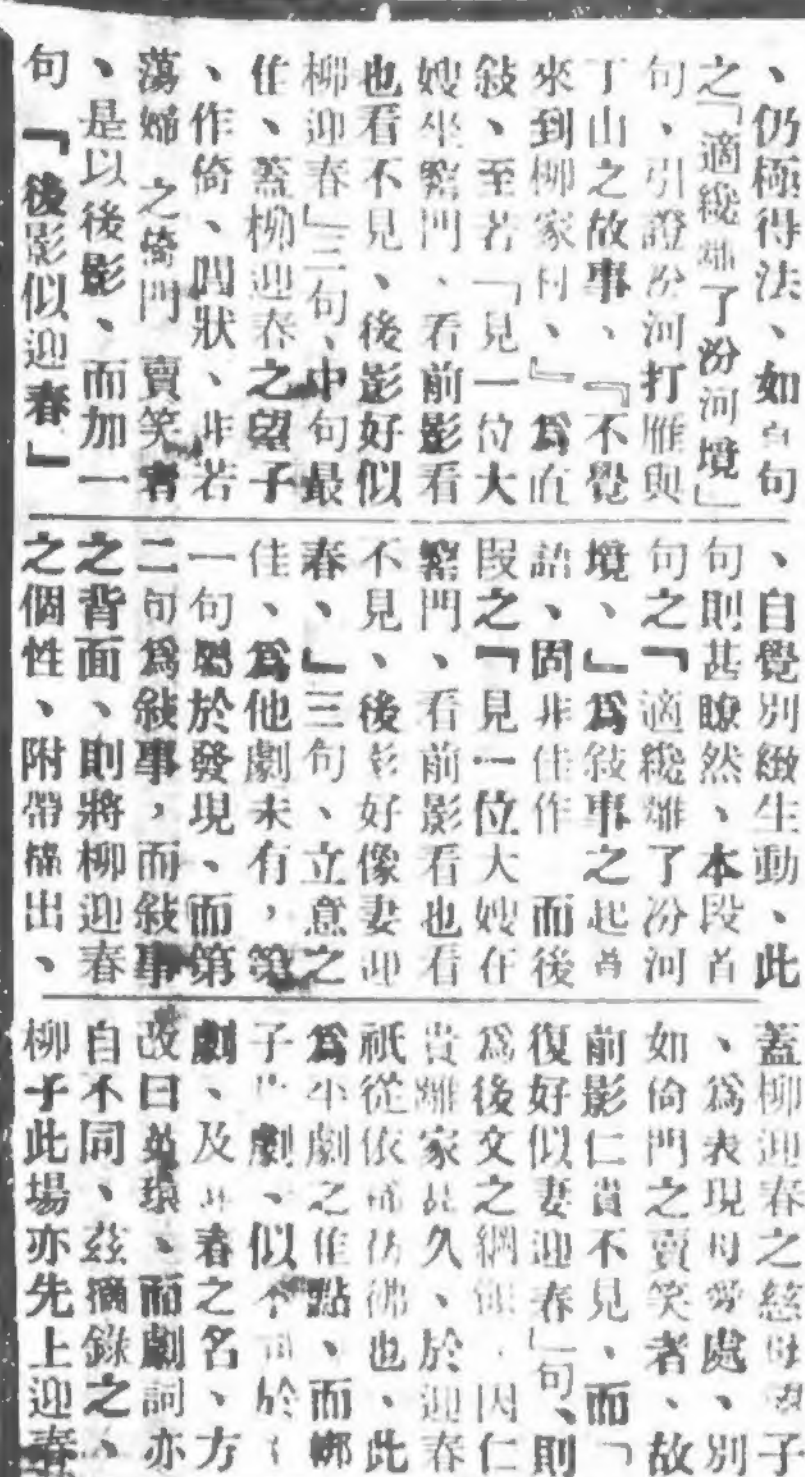 、仍極得法、如首句
之「適纔離了汾河境」
句、引證汾河打雁與
丁山之故事、『不覺
來到柳家村、』爲直
敍、至若「見一位大
嫂坐窰門、看前影看
也看不見、後影好似
柳迎春」三句、中句最
佳、蓋柳迎春之望子
、作倚、閭狀、非若
蕩婦之倚門賣笑者
、是以後影、而加一
句『後影似迎春』
、自覺別緻生動、此
句則甚瞭然、本段首
句之『適纔離了汾河
境、』爲敍事之起首
語、固非佳作 而後
段之『見一位大嫂在
窰門、看前影看也看
不見、後影好像妻迎
春、』三句、立意之
佳、爲他劇未有，第
一句屬於發現、而第
二句爲敍事，而敍事
之背面、則將柳迎春
之個性、附帶描出、
蓋柳迎春之慈母望子
、爲表現母愛處、別
如倚門之賣笑者、故
前影仁貴不見、而「
復好似妻迎春」句、則
爲後文之綱領、因仁
貴離家甚久、於迎春
祇從依稀彷彿也、此
爲坐劇之佳點、而梆
子 劇、似不 於
劇、及 春之名、方
改曰英環、而劇詞亦
自不同、茲摘錄之、
柳子此場亦先上迎春